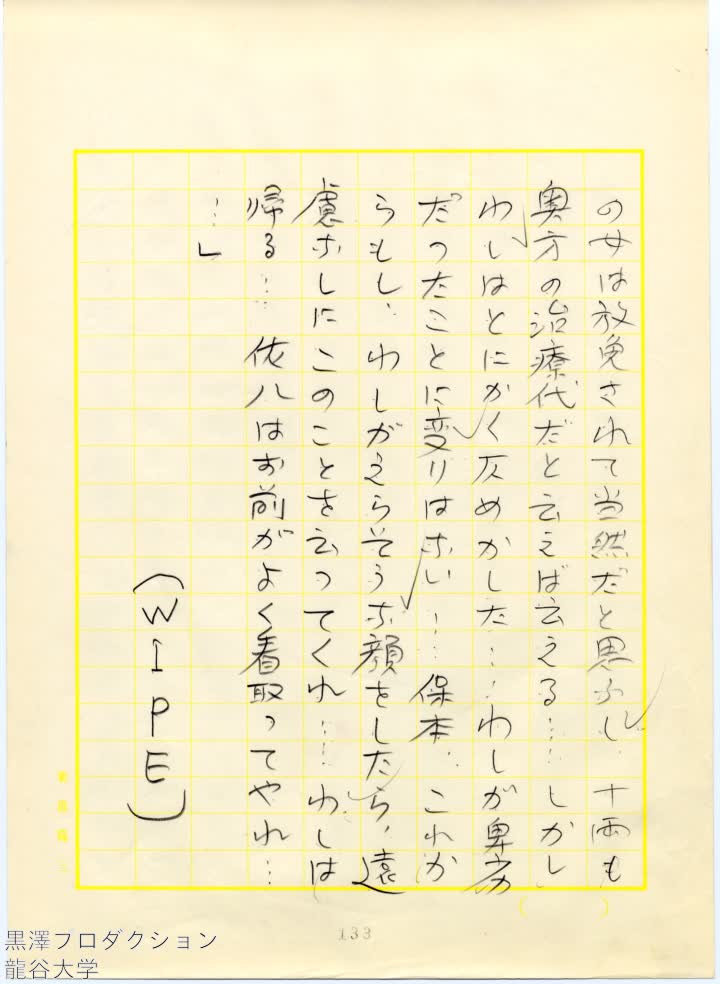 の女は放免されて当然だと思ふし 十両も
奥方の治療代だと云えば云える…しかし
わしはとにかく仄めかした…わしが卑劣
だったことに変りはない…… 保本、これか
らもし、わしがえらそうな顔をしたら、遠
慮なしにこのことを云ってくれ…わしは
帰る… 佐八はお前がよく看取ってやれ…
…」
（WIPE）
133
黒澤プロダクション
龍谷大学